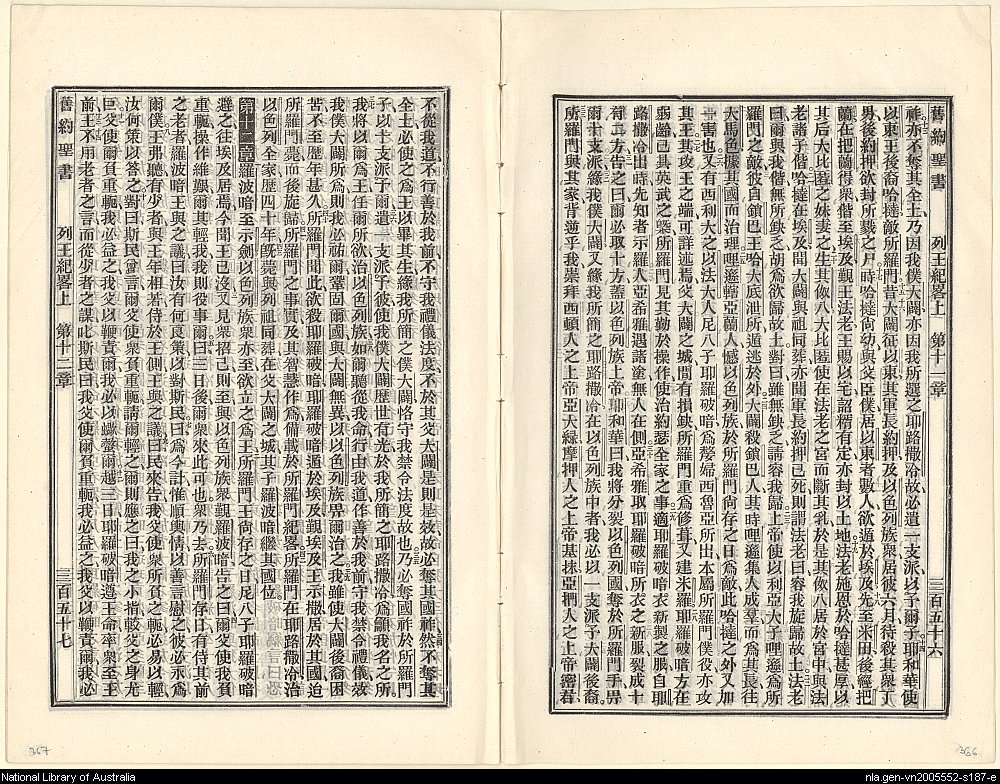 舊約聖書 列王紀畧上 第十一章 三百五十六
祚亦不奪其全土乃因我僕大闢亦因我所選之耶路撒冷故必遺一支派以予爾子耶和華使
以東王後裔哈撻敵所羅門昔大闢征以東其軍長約押及以色列族眾居彼六月待殺其眾丁
男後約押欲封所戮之尸時哈撻尚幼與父臣僕居以東者數人欲遁於埃及先至米田後經把
蘭在把蘭得眾偕至埃及覲王法老王賜以宅詔糈有定亦封以土地法老施恩於哈撻甚厚以
其后大比匿之妹妻之生其倣八大比匿使在法老之宮而斷其乳於是其倣八居於宮中與法
老諸子偕哈撻在埃及聞大闢與祖同葬亦聞軍長約押已死則謂法老曰容我旋歸故土法老
曰爾與我偕無所缺乏胡為欲歸故土對曰雖無缺乏請容我歸上帝使以利亞大子哩遜為所
羅門之敵彼自鎖巴王哈大底泄所遁逃於外大闢殺鎖巴人其時哩遜集人成羣而為其長往
大馬色據其國而治理哩遜轄亞蘭人憾以色列族於所羅門尚存之日為敵此哈撻之外又加
亞害也又有西利大之以法大人尼八子耶羅破暗為嫠婦西魯亞所出本屬所羅門僕役亦攻
其王其攻王之端可詳述焉父大闢之城間有損缺所羅門重為修葺又建米羅耶羅破暗方在
弱齡已具英武之槩所羅門見其勤於操作使治約瑟全家之事適耶羅破暗衣新製之服自耶
路撒冷出時先知者示羅人亞希雅遇諸塗無人在側亞希雅取耶羅破暗所衣之新服裂成十
有二方告之曰爾必取十方蓋以色列族上帝耶和華曰我將分裂以色列國奪於所羅門手畀
爾十支派緣我僕大闢又緣我所簡之耶路撒冷在以色列族中者我必以一支派予大闢後裔
所羅門與其家背逆乎我崇拜西頓人之上帝亞大綠摩押人之上帝基抹亞捫人之上帝密君
不從我道不行善於我前不守我禮儀法度不於其父大闢是則是效故必奪其國祚然不奪其
全土必使之為王以畢其生緣我所簡之僕大闢恪守我禁令法度故也乃必奪國祚於所羅門
子以十支派予爾遺一支派予彼使我僕大闢歷世有光於我所簡之耶路撒冷為籲我名之所
我將以爾為王任爾所欲治以色列族如爾聽從我命行由我道作善於我前守我禁令禮儀效
我僕大闢所為則我必祐爾鞏固爾國與大闢無異以以色列族畀爾治之我雖使大闢後裔困
苦不至歷年甚久所羅門聞此欲殺耶羅破暗耶羅破暗遁於埃及覲埃及王示撒居於其國迨
所羅門薨而後旋歸所羅門之事實及其智慧作為備載於所羅門紀畧所羅門在耶路撒冷治
以色列全家歷四十年既薨與列祖同葬在父大闢之城其子羅波暗繼其國位
第十二章 羅波暗至示劍以色列族眾亦至欲立之為王所羅門王尚存之日尼八子耶羅破暗
避之往埃及居焉今聞王已沒又見眾招己則至與以色列族眾覲羅波暗告之曰爾父使我負
重軛操作維艱爾其輕我我則役事爾曰三日後爾眾來此可也眾乃去所羅門存日有侍其前
之老者羅波暗王與之議曰汝有何良策以對斯民曰為今計惟順輿情以善言慰之彼必永為
爾僕王弗聽有少者與王年相若侍於王側王與之議曰民來告我父使眾所負之軛必易以輕
汝何策以答之對曰斯民嘗言爾父使眾負重軛請爾輕之爾則應之曰我之小指較父之身尤
巨父使爾負重軛我必益之我父以鞭責爾我必以蠍螫爾越三日耶羅破暗遵王命率眾至王
前王不用老者之言而從少者之謀吿斯民曰我父使爾負重軛我必益之我父以鞭責爾我必
舊約聖書 列王紀畧上 第十二章 三百五十七
367
366
National Library of Australia
nla.gen-vn2005552-s187-e